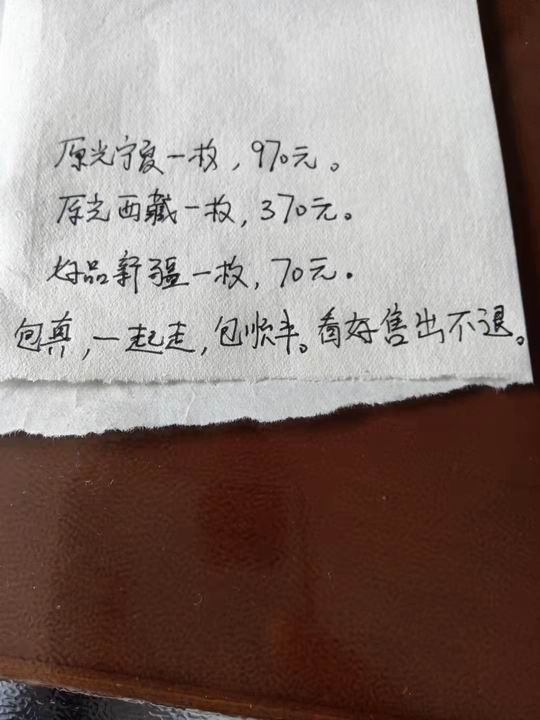 原光宁夏一枚，970元。
原光西藏一枚，370元。
好品新疆一枚，70元。
包真，一起走，包顺丰。看好售出不退。